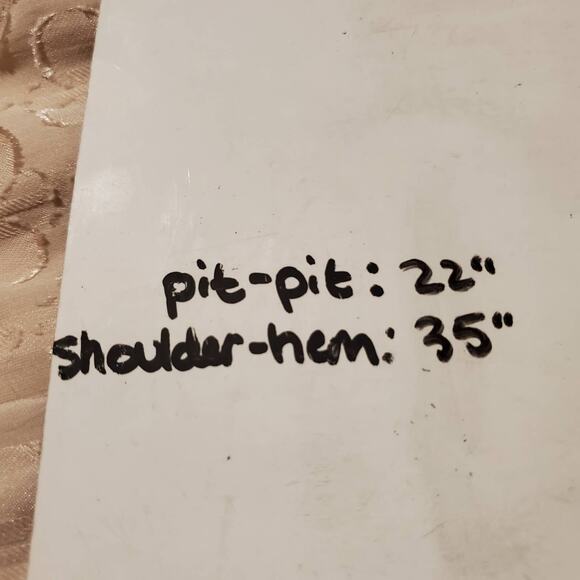 pit-pit: 22"
shoulder-hem: 35"